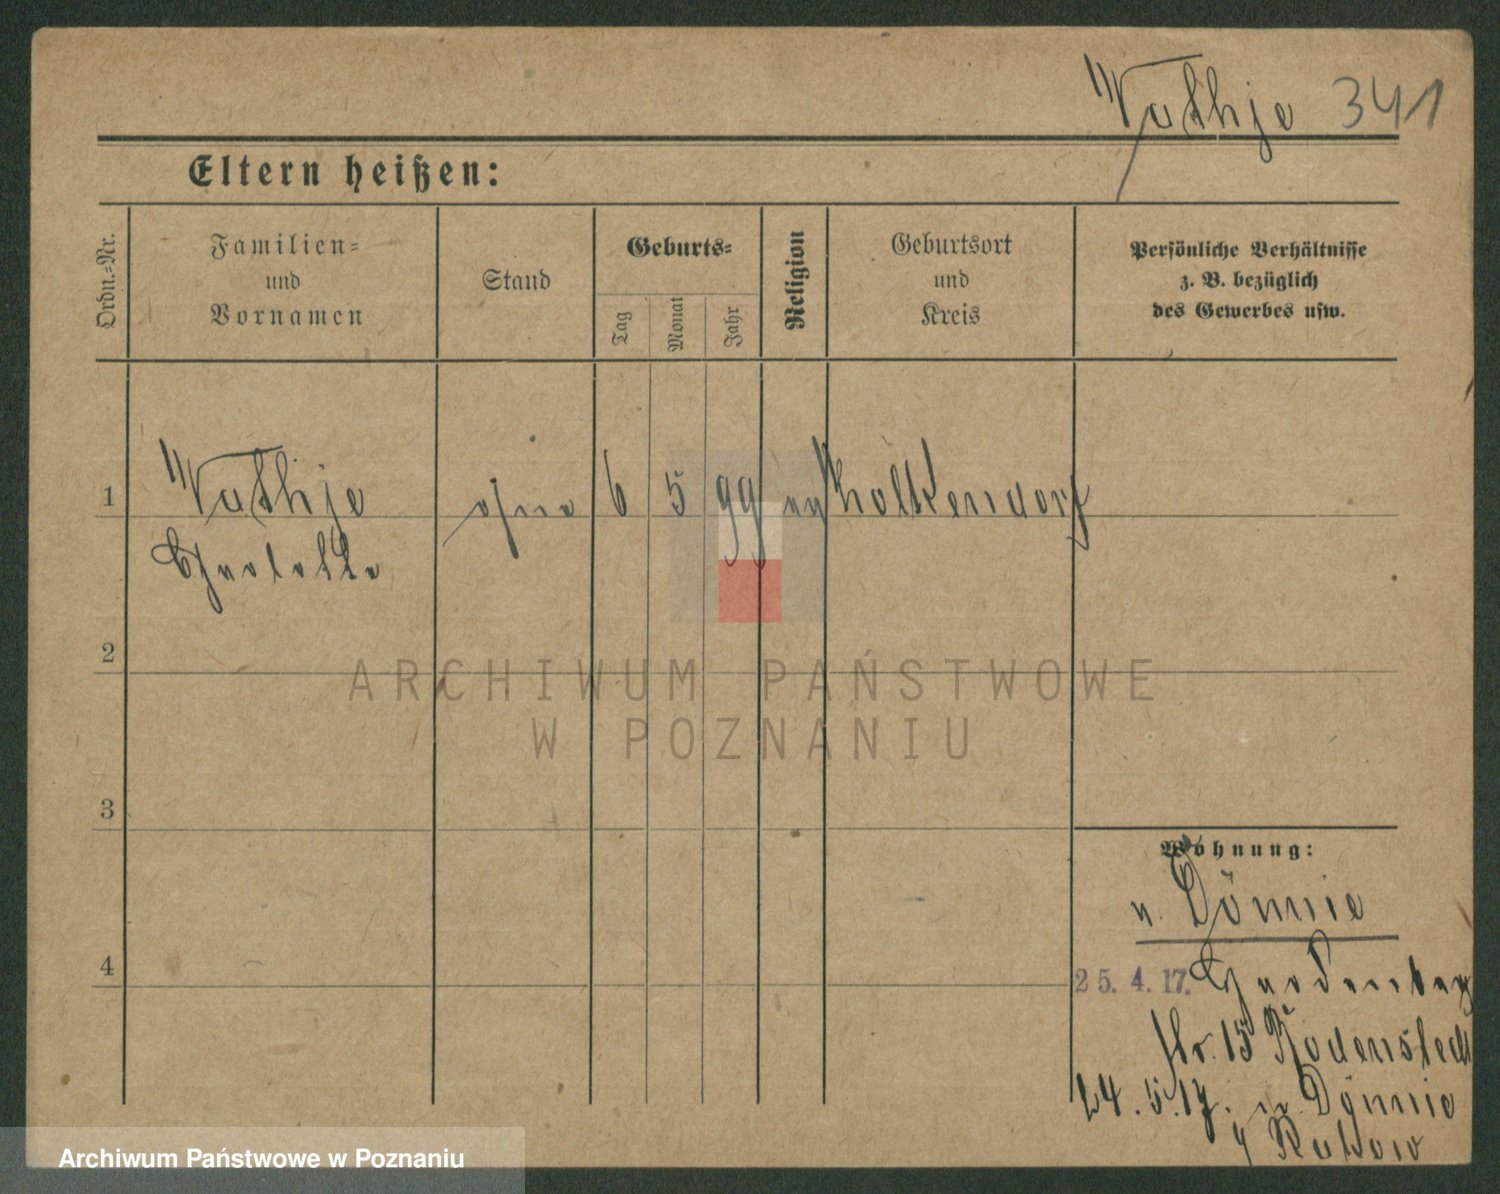 Wathje 341
Eltern heißen:
Ordn.=Nr.
Familien=
und
Vornamen
Stand
Geburts=
Tag
Monat
Jahr
Religion
Geburtsort
und
Kreis
Persönliche Verhältnisse
z. B. bezüglich
des Gewerbes usw.
1
Wathje
Charlotte
ohne
6
5
99
ev
2
3
4
Wohnung:
n. Dömnie
25. 4. 17.
str. 15
24. 5. 17. n. Dömnie
ARCHIWUM PAŃSTWOWE
W POZNANIU
Archiwum Państwowe w Poznaniu